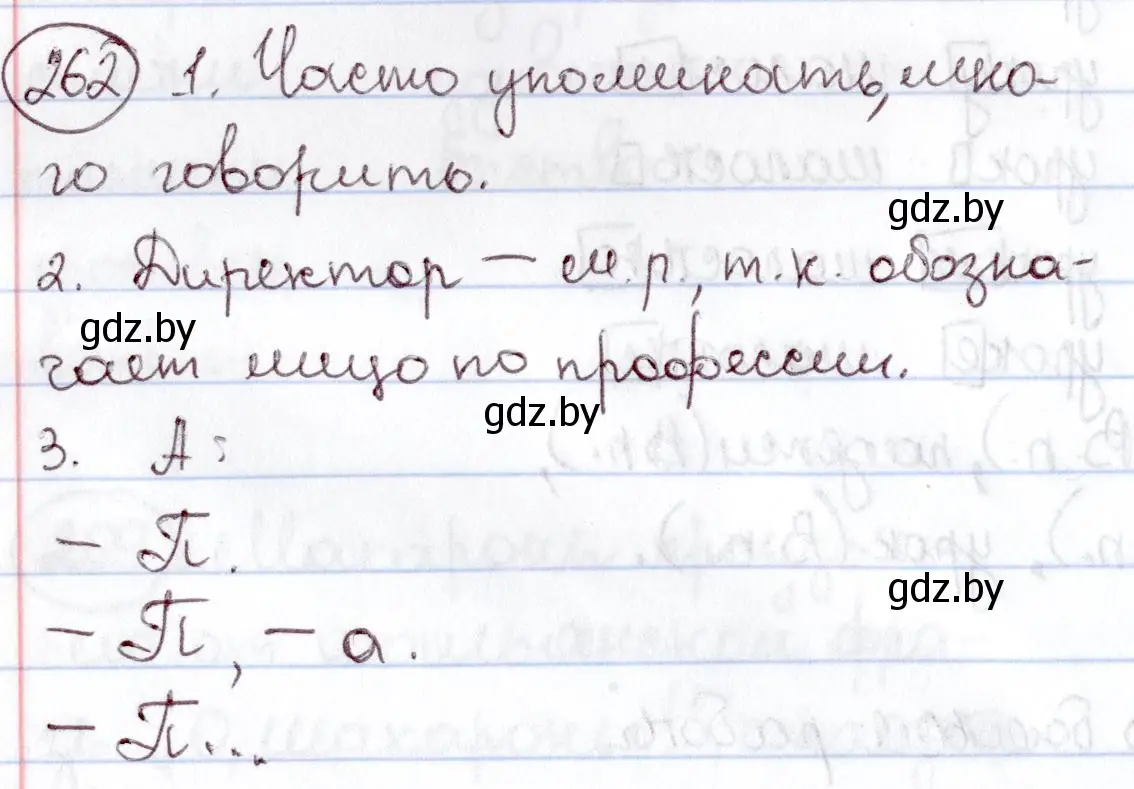 262 1. Часто упоминать, мно-
го говорить.
gdz.by
2. Директор — м.р., т.к. обозна-
gdz.by
чает лицо по профессии.
gdz.by
3. А:
— П.
gdz.by
— П, — а.
— П...